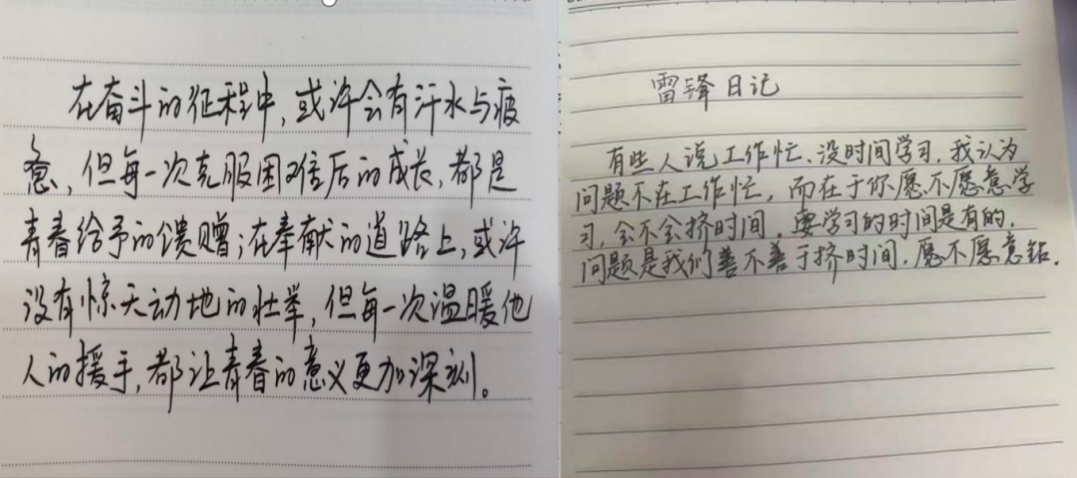 在奋斗的征程中,或许会有汗水与疲
惫,但每一次克服困难后的成长,都是
青春给予的馈赠;在奉献的道路上,或许
没有惊天动地的壮举,但每一次温暖他
人的援手,都让青春的意义更加深刻。
雷锋日记
有些人说工作忙、没时间学习,我认为
问题不在工作忙,而在于你愿不愿意学
习,会不会挤时间,要学习的时间是有的,
问题是我们善不善于挤时间,愿不愿意钻。